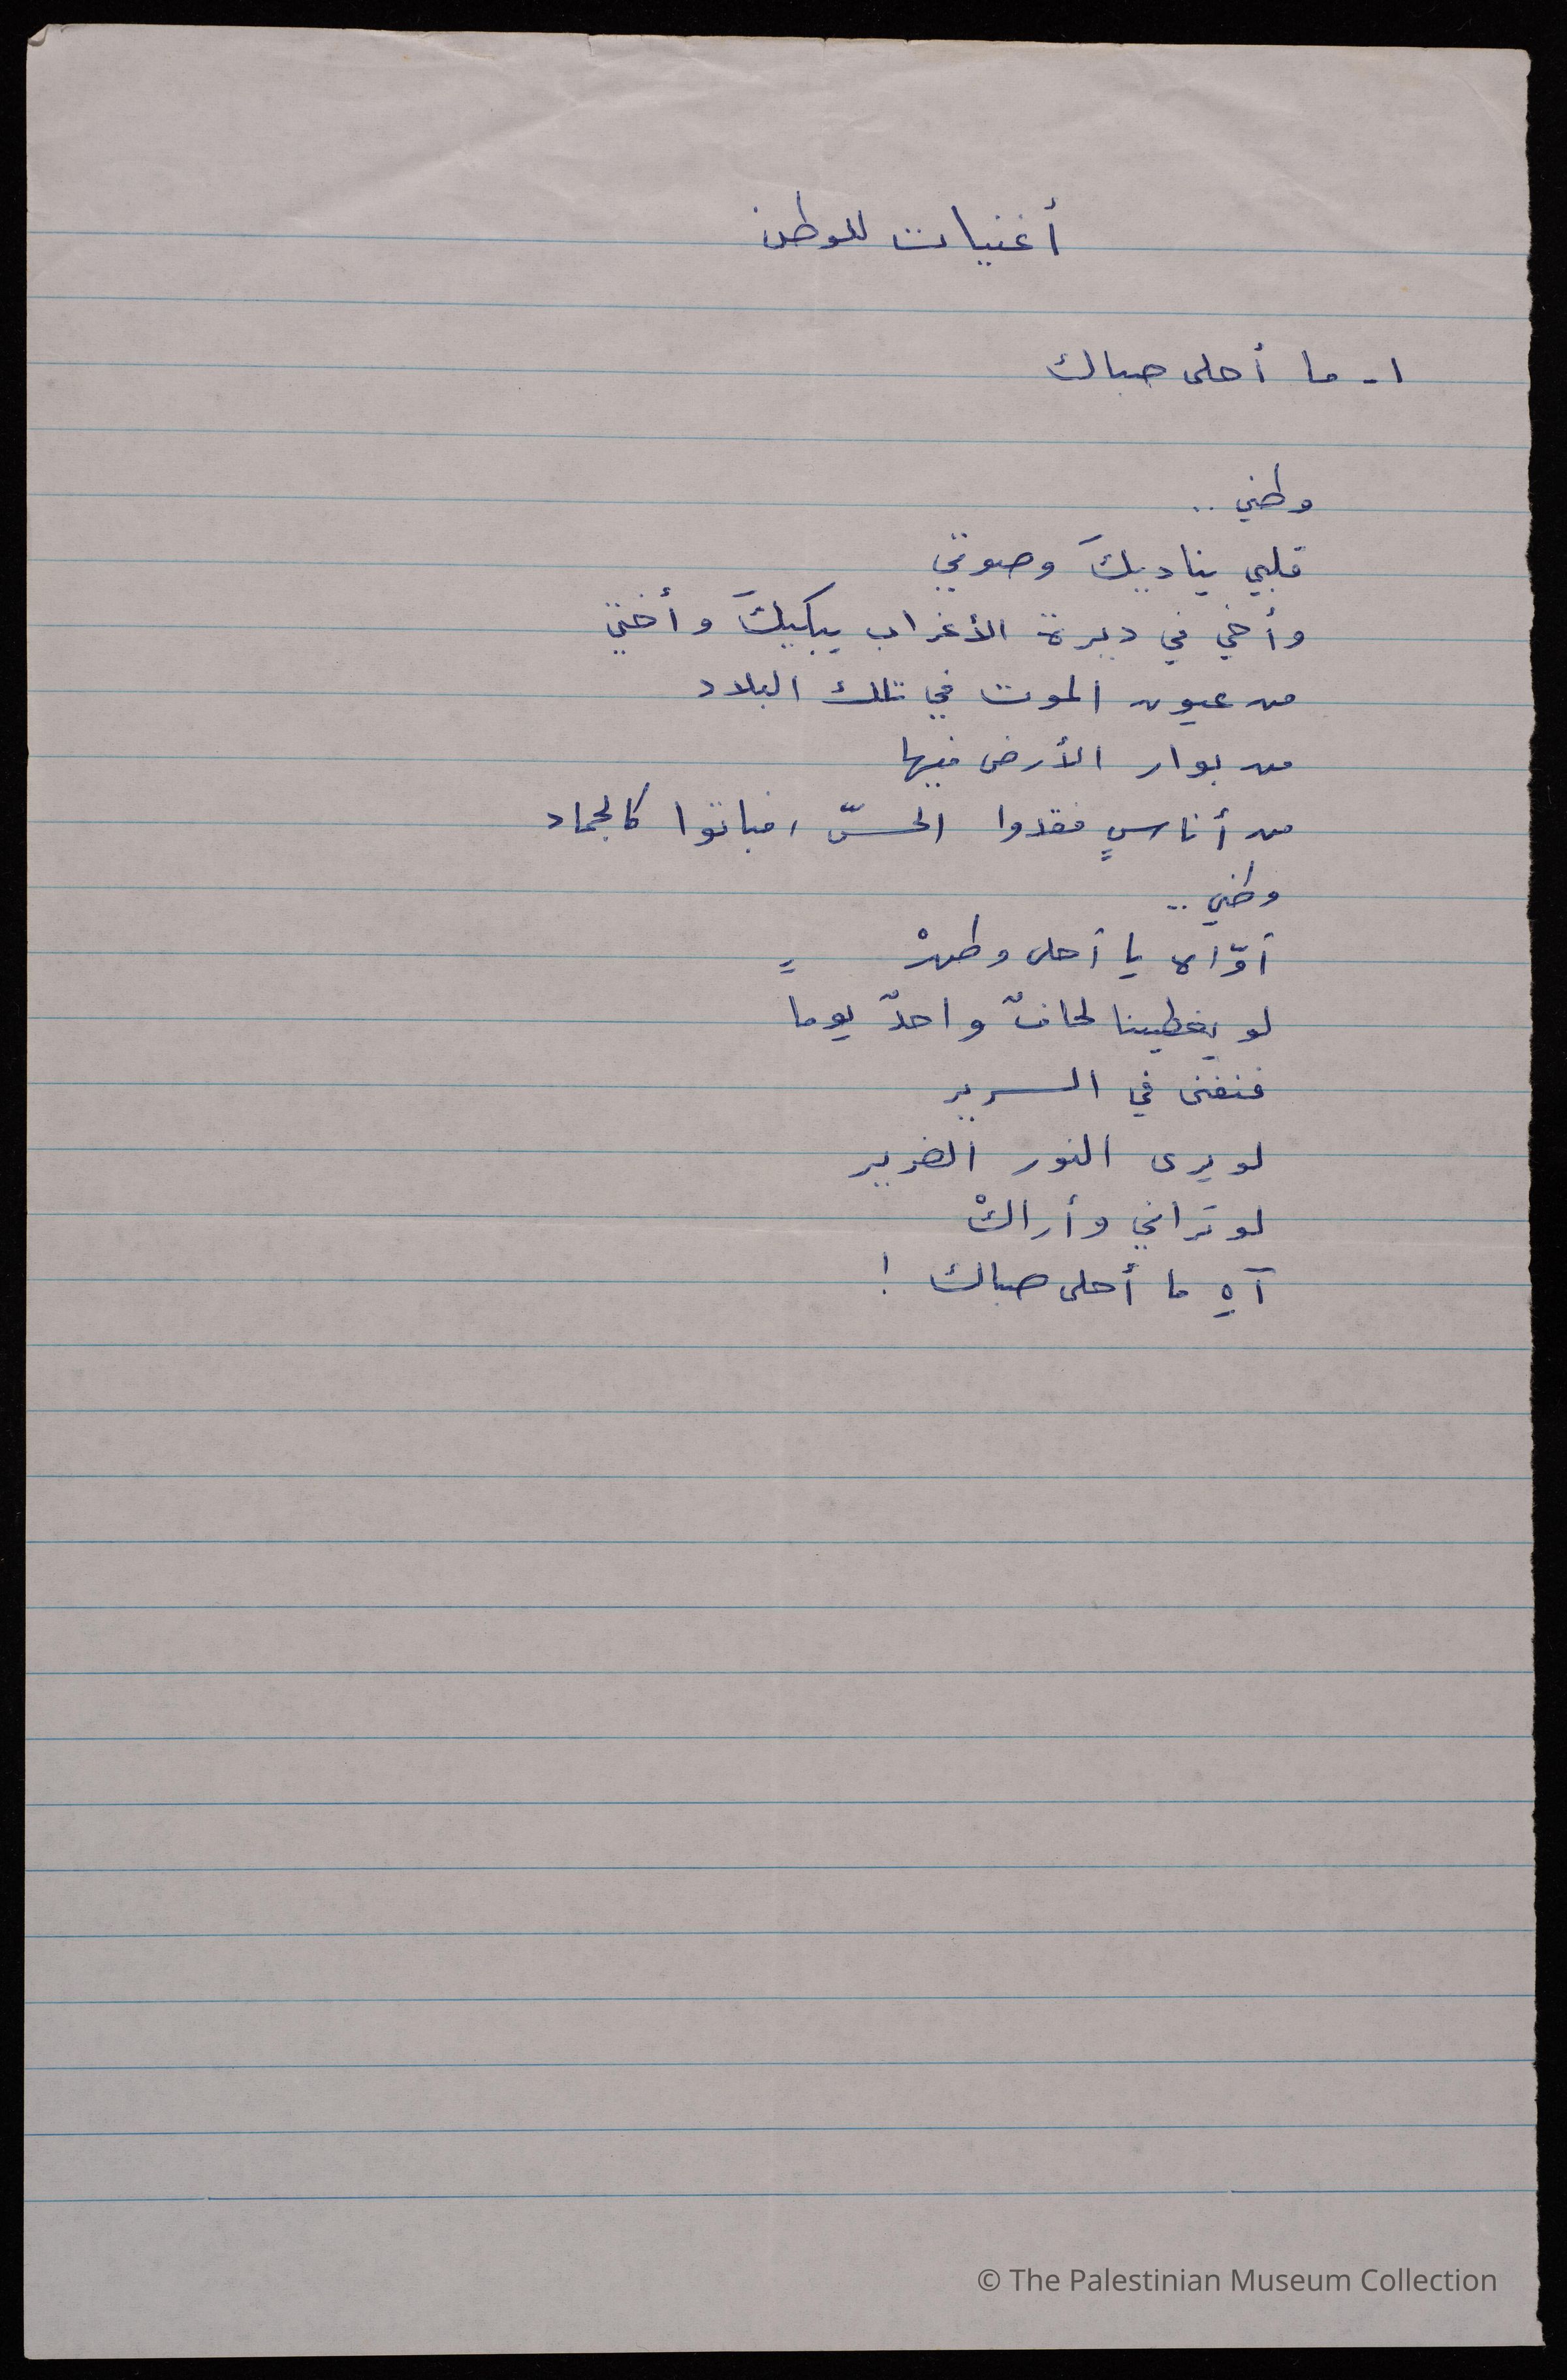 أغنيات للوطن
١- ما أحلى صباك
وطني ..
قلبي يناديكَ وصوتي
وأخي في ديرة الأغراب يبكيكَ وأختي
من عيون الموت في تلك البلاد
من بوار الأرض فيها
من أناسٍ فقدوا الحسّ ، فباتوا كالجماد
وطني ..
أوّاه يا أحلى وطنْ
لو يغطينا لحافٌ واحدٌ يوما
فنفنى في السرير
لو يرى النور الضرير
لو تراني وأراكْ
آهِ ما أحلى صباك !
© The Palestinian Museum Collection